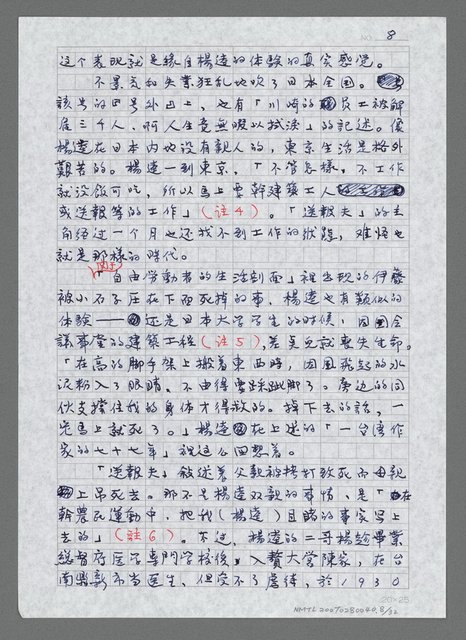 NO. 8
这个表现就是缘自楊逵的体験的真实感覚。
不景气和失業狂乱地吹了日本全国。
該号的四号外口上，也有「川崎的員工被解
雇三千人、啊人生竟無暇以拭淚」的記述。像
楊逵在日本内地没有親人的，東京生活是格外
艱苦的。楊逵一到東京，「不管怎樣，不工作
就没飯可吃，所以馬上要幹建築工人
或送報等的工作」（註4）。「送報夫」的主
角経过一个月也还找不到工作的狀態，难怪也
就是那樣的時代。
関于「自由労動者的生活剖面」裡出現的伊藤
被小石子压在下面死掉的事，楊逵也有類似的
体験——还是日本大学学生的時候，因国会
議事堂的建築工程（註5），差点兒就喪失生命。
「在高的脚手架上搬着東西時，因風飛起的水
泥粉入了眼睛，不由得要踩跐脚了。旁边的同
伙支撐住我的身体才得救的。掉下去的話，一
定馬上就死了。」楊逵在上述的「一台湾作
家的七十七年」裡这么回想着。
「送報夫」敘述着父親被拷打致死而母親
上吊死去。那不是楊逵双親的事情，是「在
幹農民運動中，把我（楊逵）目睹的事実写上
去的」（註6）。不过，楊逵的二哥楊趁畢業
総督府医学専門学校後，入贅大営陳家，在台
南県新市当医生，但受不了虐待，於1930
20×25
NMTL20070280040.8/32